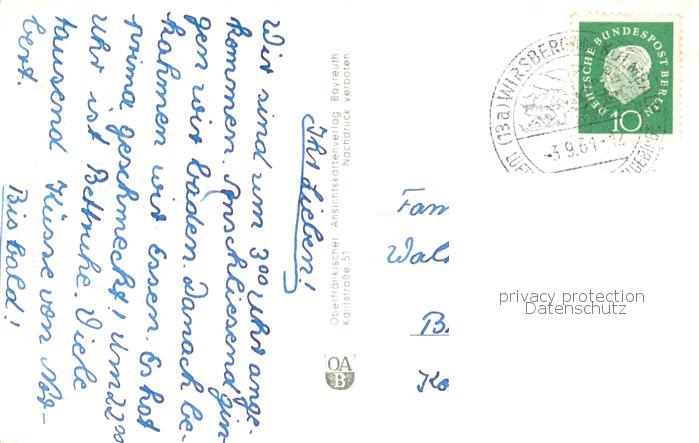 Ihr Lieben!
Wir sind um 3⁰⁰ Uhr ange-
kommen. Anschliesend gin-
gen wir baden. Danach be-
kahmen wir Essen. Es hat
prima geschmeckt! Um 22⁰⁰
Uhr ist Bettruhe. Viele
tausend Küsse von Nor-
bert.
Bis bald!
Oberfränkischer Ansichtskartenverlag Bayreuth
Karlstraße 51 Nachdruck verboten
OA
B
DEUTSCHE BUNDESPOST BERLIN
10
(13a) WIRSBERG
-3.9.61-12
LUFT
Fam
Wal
B
Ko
privacy protection
Datenschutz